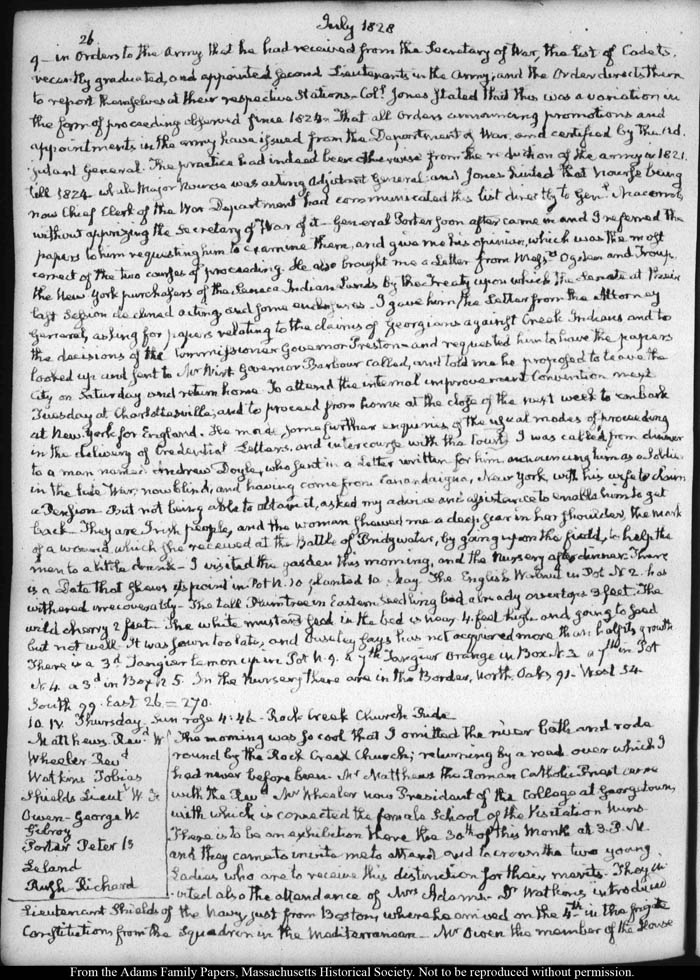 July 1828
26
9— in Orders to the Army that he had received from the Secretary of War, the list of Cadets,
recently graduated, and appointed Second Lieutenants in the Army; and the Order directs them
to report themselves at their respective Stations. Colł. Jones stated that this was a variation in
the form of proceeding observed since 1824. That all Orders announcing promotions and
appointments in the army have issued from the Department of War, and certified by the Ad-
jutant General. The practice had indeed been otherwise from the reduction of the army in 1821.
till 1824 while Major Nourse was acting Adjutant General; and Jones hinted that Nourse being
now Chief Clerk of the War Department had communicated this list directly to Genł. Macomb,
without apprizing the Secretary of War of it— General Porter soon after came in and I referred the
papers to him requesting him to examine them, and give me his opinion, which was the most
correct of the two courses of proceeding. He also brought me a Letter from Messrs Ogden and Troup,
the New York purchasers of the Seneca Indian Lands by the Treaty upon which the Senate at their
last Session declined acting and some enclosures. I gave him the Letter from the Attorney
General, asking for papers relating to the claims of Georgians against Creek Indians and to
the decisions of the Commissioner Governor Preston— and requested him to have the papers
looked up and sent to Mr Wirt. Governor Barbour called, and told me he proposed to leave the
City on Saturday and return home. To attend the internal improvement Convention next
Tuesday at Charlottesville; and to proceed from home at the close of the next week to embark
at New York for England. He made some further enquiries of the usual modes of proceeding
in the delivery of Credential Letters, and intercourse with the Court. I was called from dinner
to a man named Andrew Doyle, who sent in a Letter written for him announcing him as a Soldier
in the late War, now blind, and having come from Canandaigua, New York, with his wife to claim
a Pension. But not being able to obtain it, asked my advice and assistance to enable him to get
back. They are Irish people, and the woman shewed me a deep scar in her shoulder, the mark
of a wound which she received at the Battle of Bridgwater, by going upon the field, to help the
men to a little drink— I visited the garden this morning, and the Nursery after dinner. There
is a Date that shews its point in Pot N. 10, planted 10. May. The English Walnut in Pot N. 2. has
withered irrecoverably— The tall Plumtree in Eastern seedling bed already overtops 3 feet. The
wild cherry 2 feet. The white mustard seed in the bed is near 4 feet high and going to seed
but not well. It was sown too late, and Ousley says has not acquired more than half its growth
There is a 3d. Tangier Lemon up in Pot N. 9. a 7th Tangier Orange in Box N. 3 a 7th in Pot
N. 4. a 3d in Box N 5. In the Nursery there are in the Border, North Oaks 91. West 54
South 99. East 26 = 270.
10. IV. Thursday. Sun rose 4:46. Rock Creek Church Ride
Matthews Revd. W
Wheeler Revd
Watkins Tobias
Shields Lieut W. F.
Owen— George W.
Gilroy
Porter Peter B
Leland
Rush Richard
The morning was so cool that I omitted the river bath and rode
round by the Rock Creek Church; returning by a road over which I
had never before been. Mr Matthews the Roman Catholic Priest came
with the Revd. Mr Wheeler now President of the College at Georgetown,
with which is connected the female School of the Visitation Nuns
There is to be an exhibition there the 30th of this Month at 3. P.M.
and they came to invite me to attend and to crown the two young
Ladies who are to receive this distinction for their merits. They in-
vited also the attendance of Mrs Adams. Dr Watkins introduced
Lieutenant Shields of the Navy just from Boston, where he arrived on the 4th in the frigate
Constitution from the Squadron in the Mediterranean— Mr Owen the member of the House
From the Adams Family Papers, Massachusetts Historical Society. Not to be reproduced without permission.